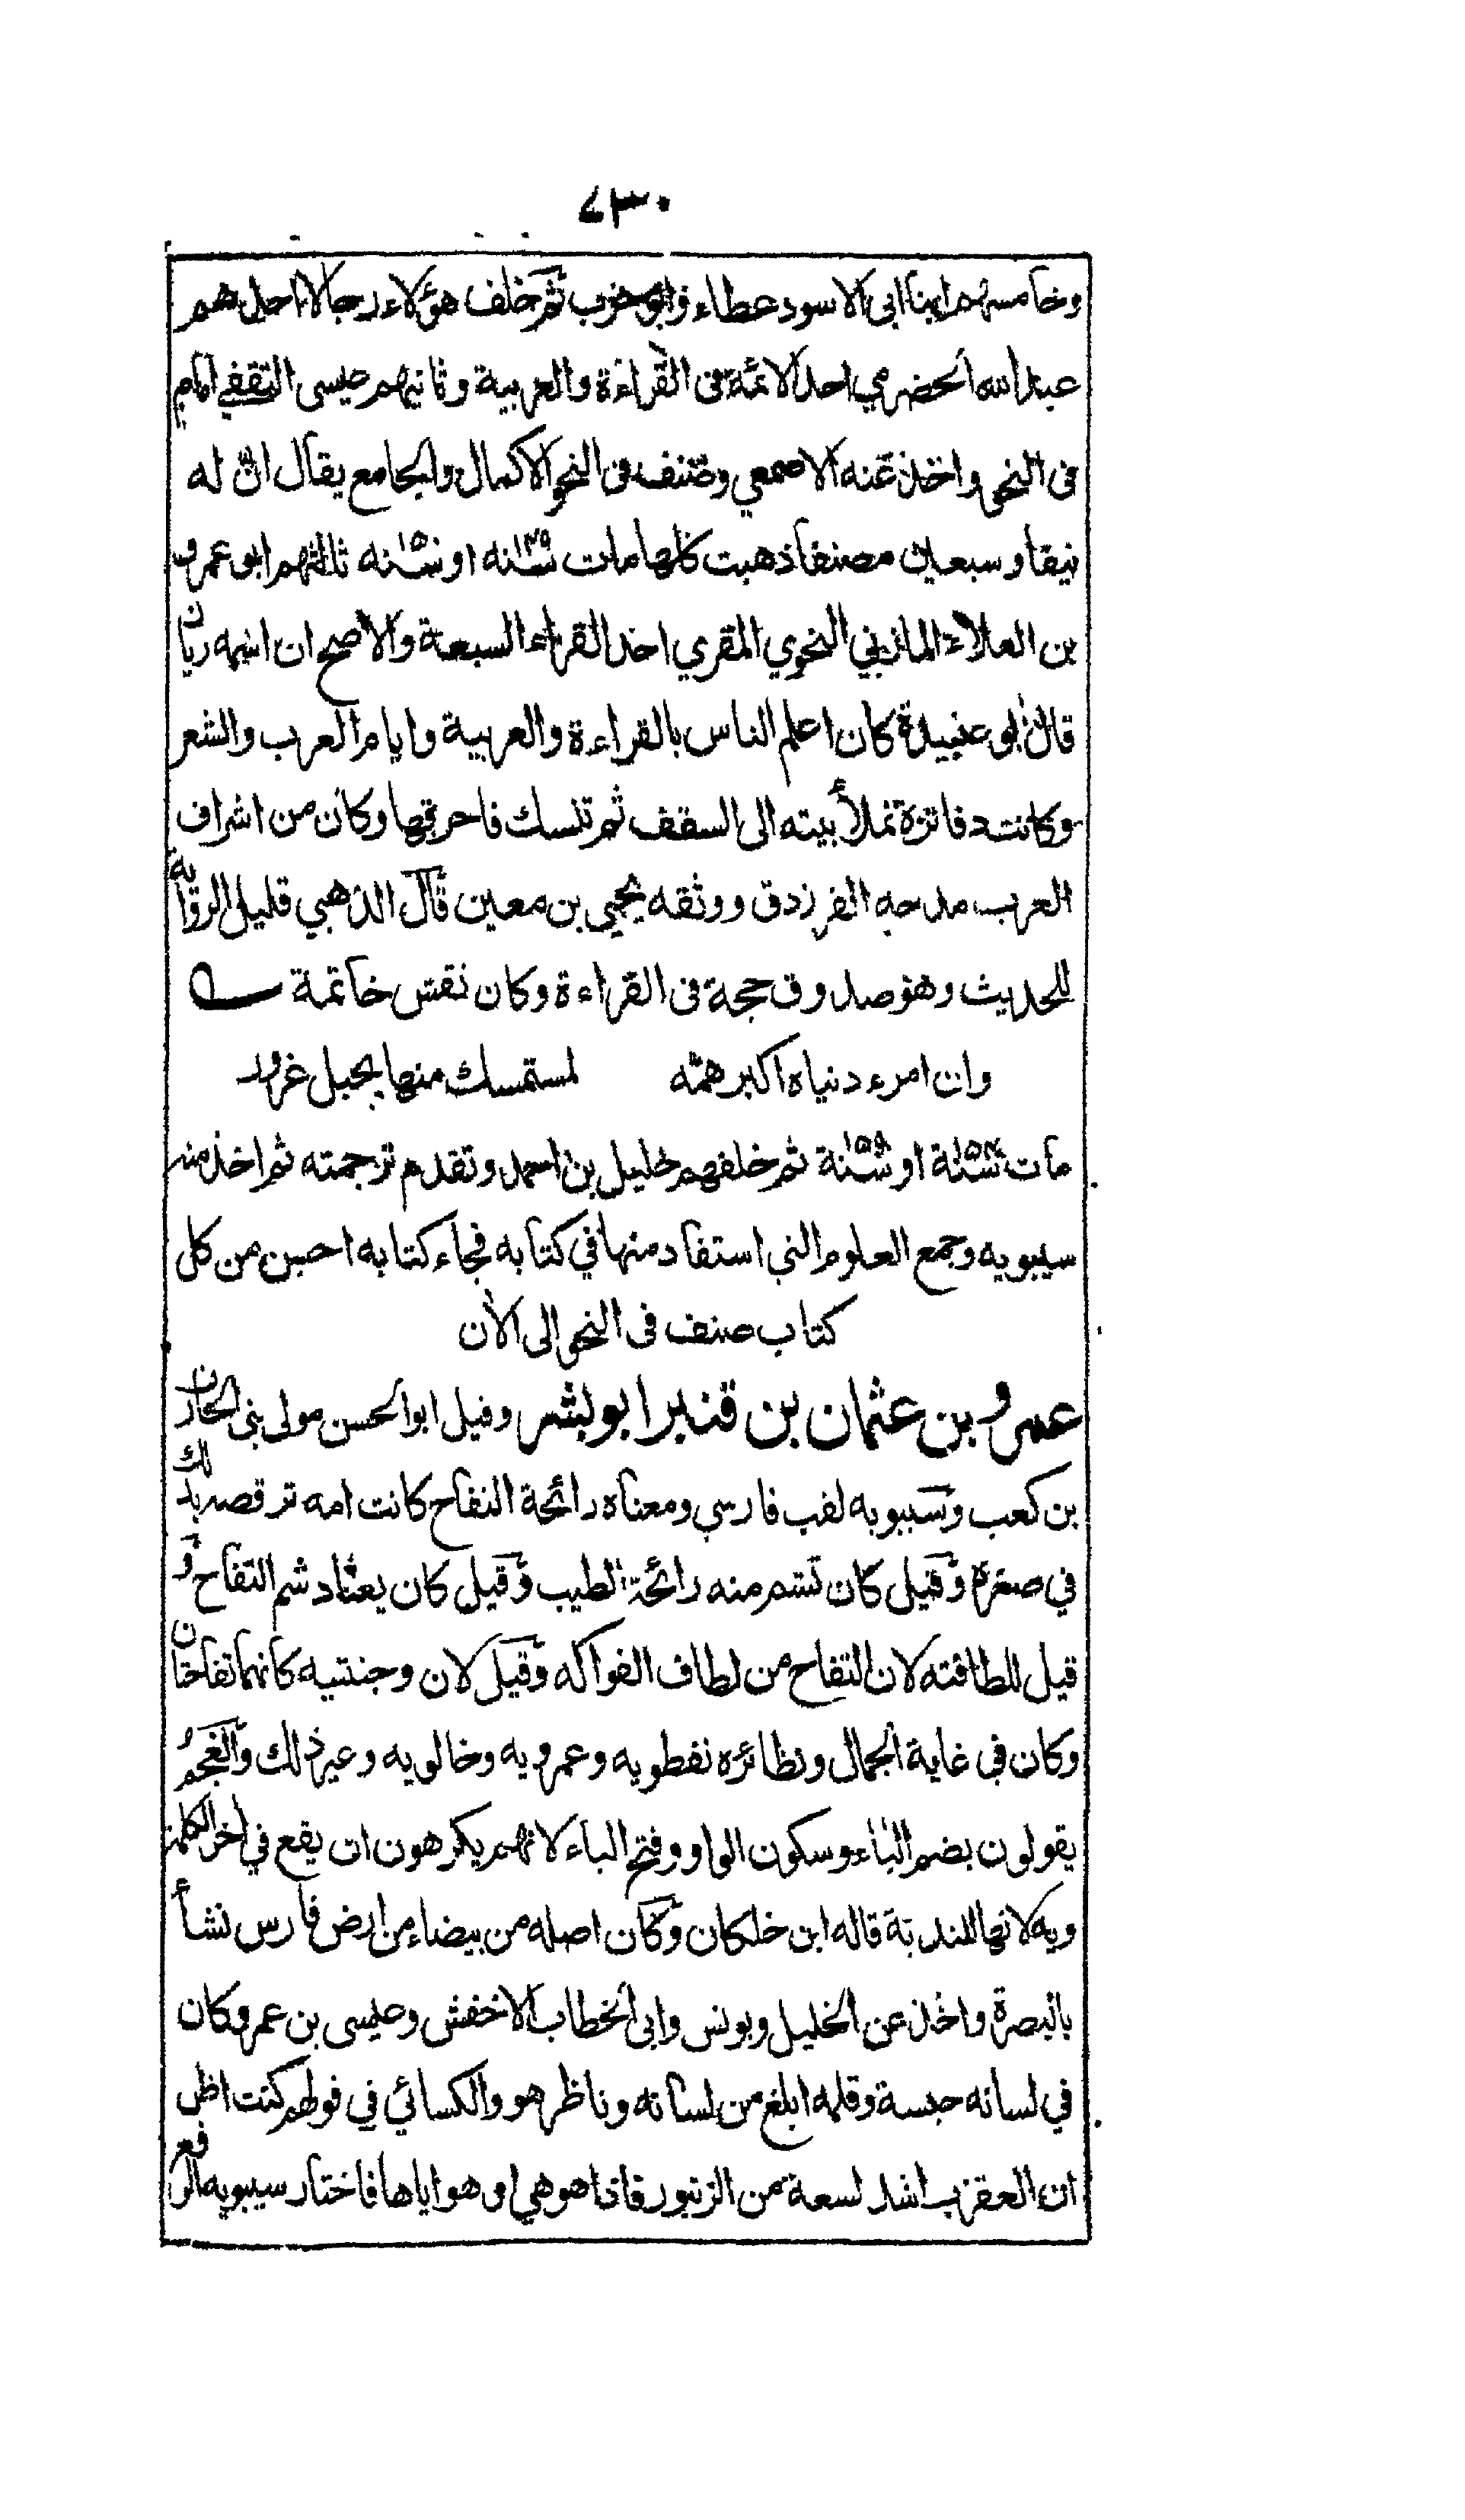 ٧٣٠
وخامسهم ابنا ابى الاسود عطاء وابو حرب ثم خلف هؤلاء رجالا احدهم
عبد الله الحضرمي احد الائمة فى القراءة والعربية وثانيهم عيسى الثقفي امام
فى النحو واخذ عنه الاصمعي وصنف فى النحو الاكمال والجامع يقال ان له
نيفا وسبعين مصنفا ذهبت كلها مات سنة ١٤٩ او سنة ١٥٠ ثالثهم ابو عمرو
بن العلاء المازني النحوي المقري احد القراء السبعة والاصح ان اسمه ربان
قال ابو عبيدة كان اعلم الناس بالقراءة والعربية وايام العرب والشعر
وكانت دفاتره تملأ بيته الى السقف ثم تنسك فاحرقها وكان من اشراف
العرب مدحه الفرزدق ووثقه يحيي بن معين قال الذهبي قليل الرواية
للحديث وهو صدوق حجة فى القراءة وكان نقش خاتمه
وان امرء دنياه اكبر همّه لمستمسك منها بحبل غرور
مات سنة ١٥٤ او سنة ١٥٩ ثم خلفهم خليل بن احمد وتقدم ترجمته ثم اخذ منه
سيبويه وجمع العلوم التي استفاد منها في كتابه فجاء كتابه احسن من كل
كتاب صنف فى النحو الى الان
عمرو بن عثمان بن قنبر ابو بشر وقيل ابو الحسن مولى بني الحارث
بن كعب وسيبويه لقب فارسي ومعناه رائحة التفاح كانت امه ترقصه بذلك
في صغره وقيل كان تشم منه رائحة الطيب وقيل كان يعتاد شم التفاح و
قيل للطافته لان التفاح من لطاف الفواكه وقيل لان وجنتيه كانهما تفاحتان
وكان فى غاية الجمال ونظائره نفطويه وعمرويه وخالويه وغير ذلك والعجم
يقولون بضم الباء وسكون الواو وفتح الياء لانهم يكرهون ان يقع في اخر الكلمة
ويه لانها للندبة قاله ابن خلكان وكان اصله من بيضاء من ارض فارس نشأ
بالبصرة واخذ عن الخليل ويونس وابى الخطاب الاخفش وعيسى بن عمرو كان
في لسانه حبسة وقلمه ابلغ من لسانه وناظر هو والكسائي في قولهم كنت اظن
ان العقرب اشد لسعة من الزنبور فاذا هو هي او هو اياها فاختار سيبويه الرفع